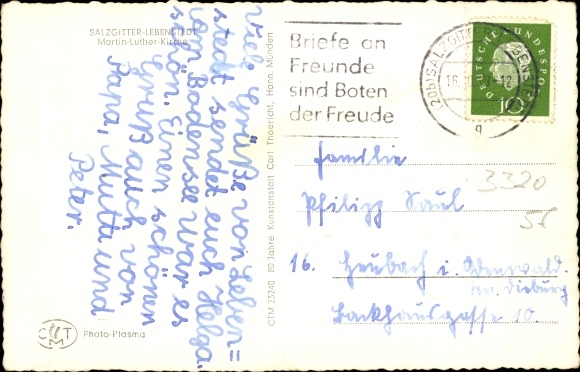 SALZGITTER-LEBENSTEDT
Martin-Luther-Kirche
Viele Grüße von Leben=
stedt sendet euch Helga.
vom Bodensee war es
schön. Einen schönen
Gruß auch von
Papa, Mutti und
Peter.
CTM 23240 80 Jahre Kunstanstalt Carl Thoericht, Hann. Münden
CTM
Photo-Plasma
Briefe an
Freunde
sind Boten
der Freude
(20b) SALZGITTER-LEBENSTEDT
16.
12
q
DEUTSCHE BUNDESPOST
10
Familie
3320
Philipp Saul
56
16. Heubach i. Odenwald.
Kr. Dieburg
Backhausgasse 10.